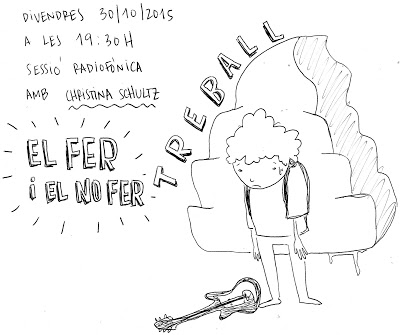 DIVENDRES 30/10/2015
A LES 19:30H
SESSIÓ RADIOFÒNICA
AMB CHRISTINA SCHULTZ
EL FER
i EL NO FER
TREBALL